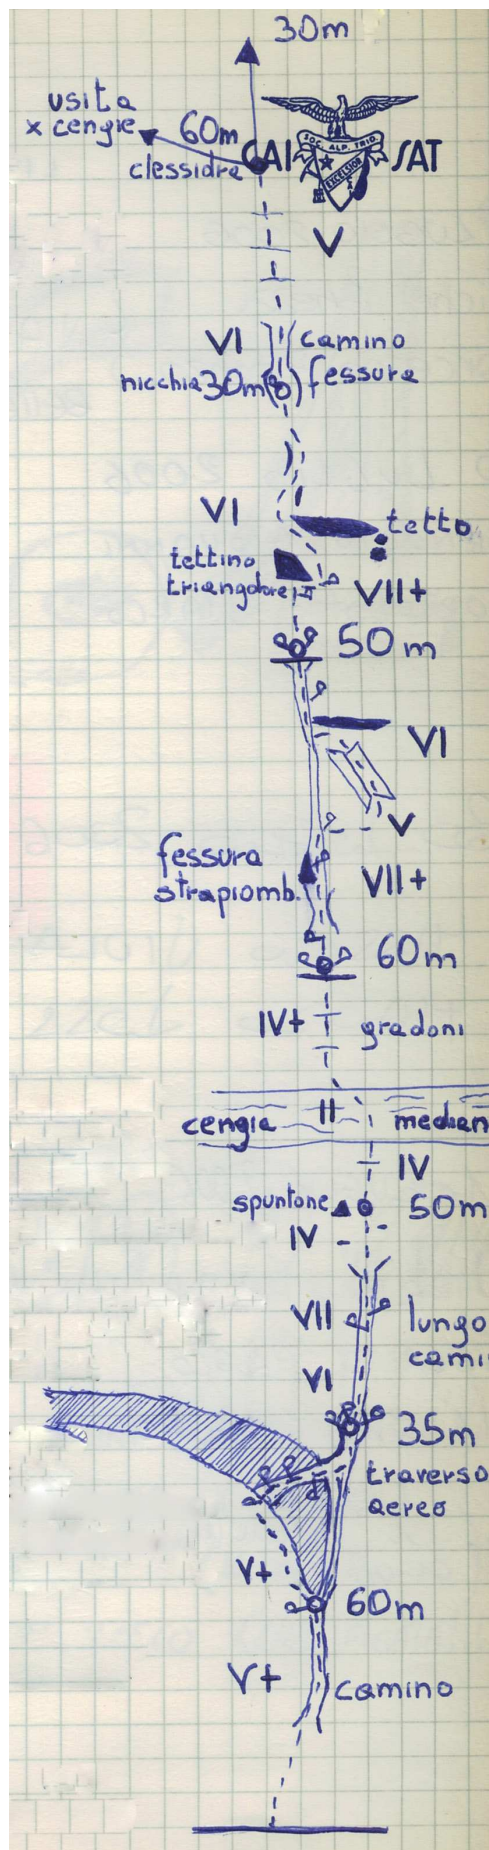 30m
usita
x cengie
60m
clessidra
CAI
SOC. ALP. TRID.
EXCELSIOR
SAT
V
VI
camino
fessura
nicchia 30m
VI
tetto
tettino
triangolare
VII+
50m
VI
V
fessura
strapiomb.
VII+
60m
IV+
gradoni
cengia
II
median
IV
spuntone
50m
IV
VII
lungo
cami
VI
35m
traverso
aereo
V+
60m
V+
camino